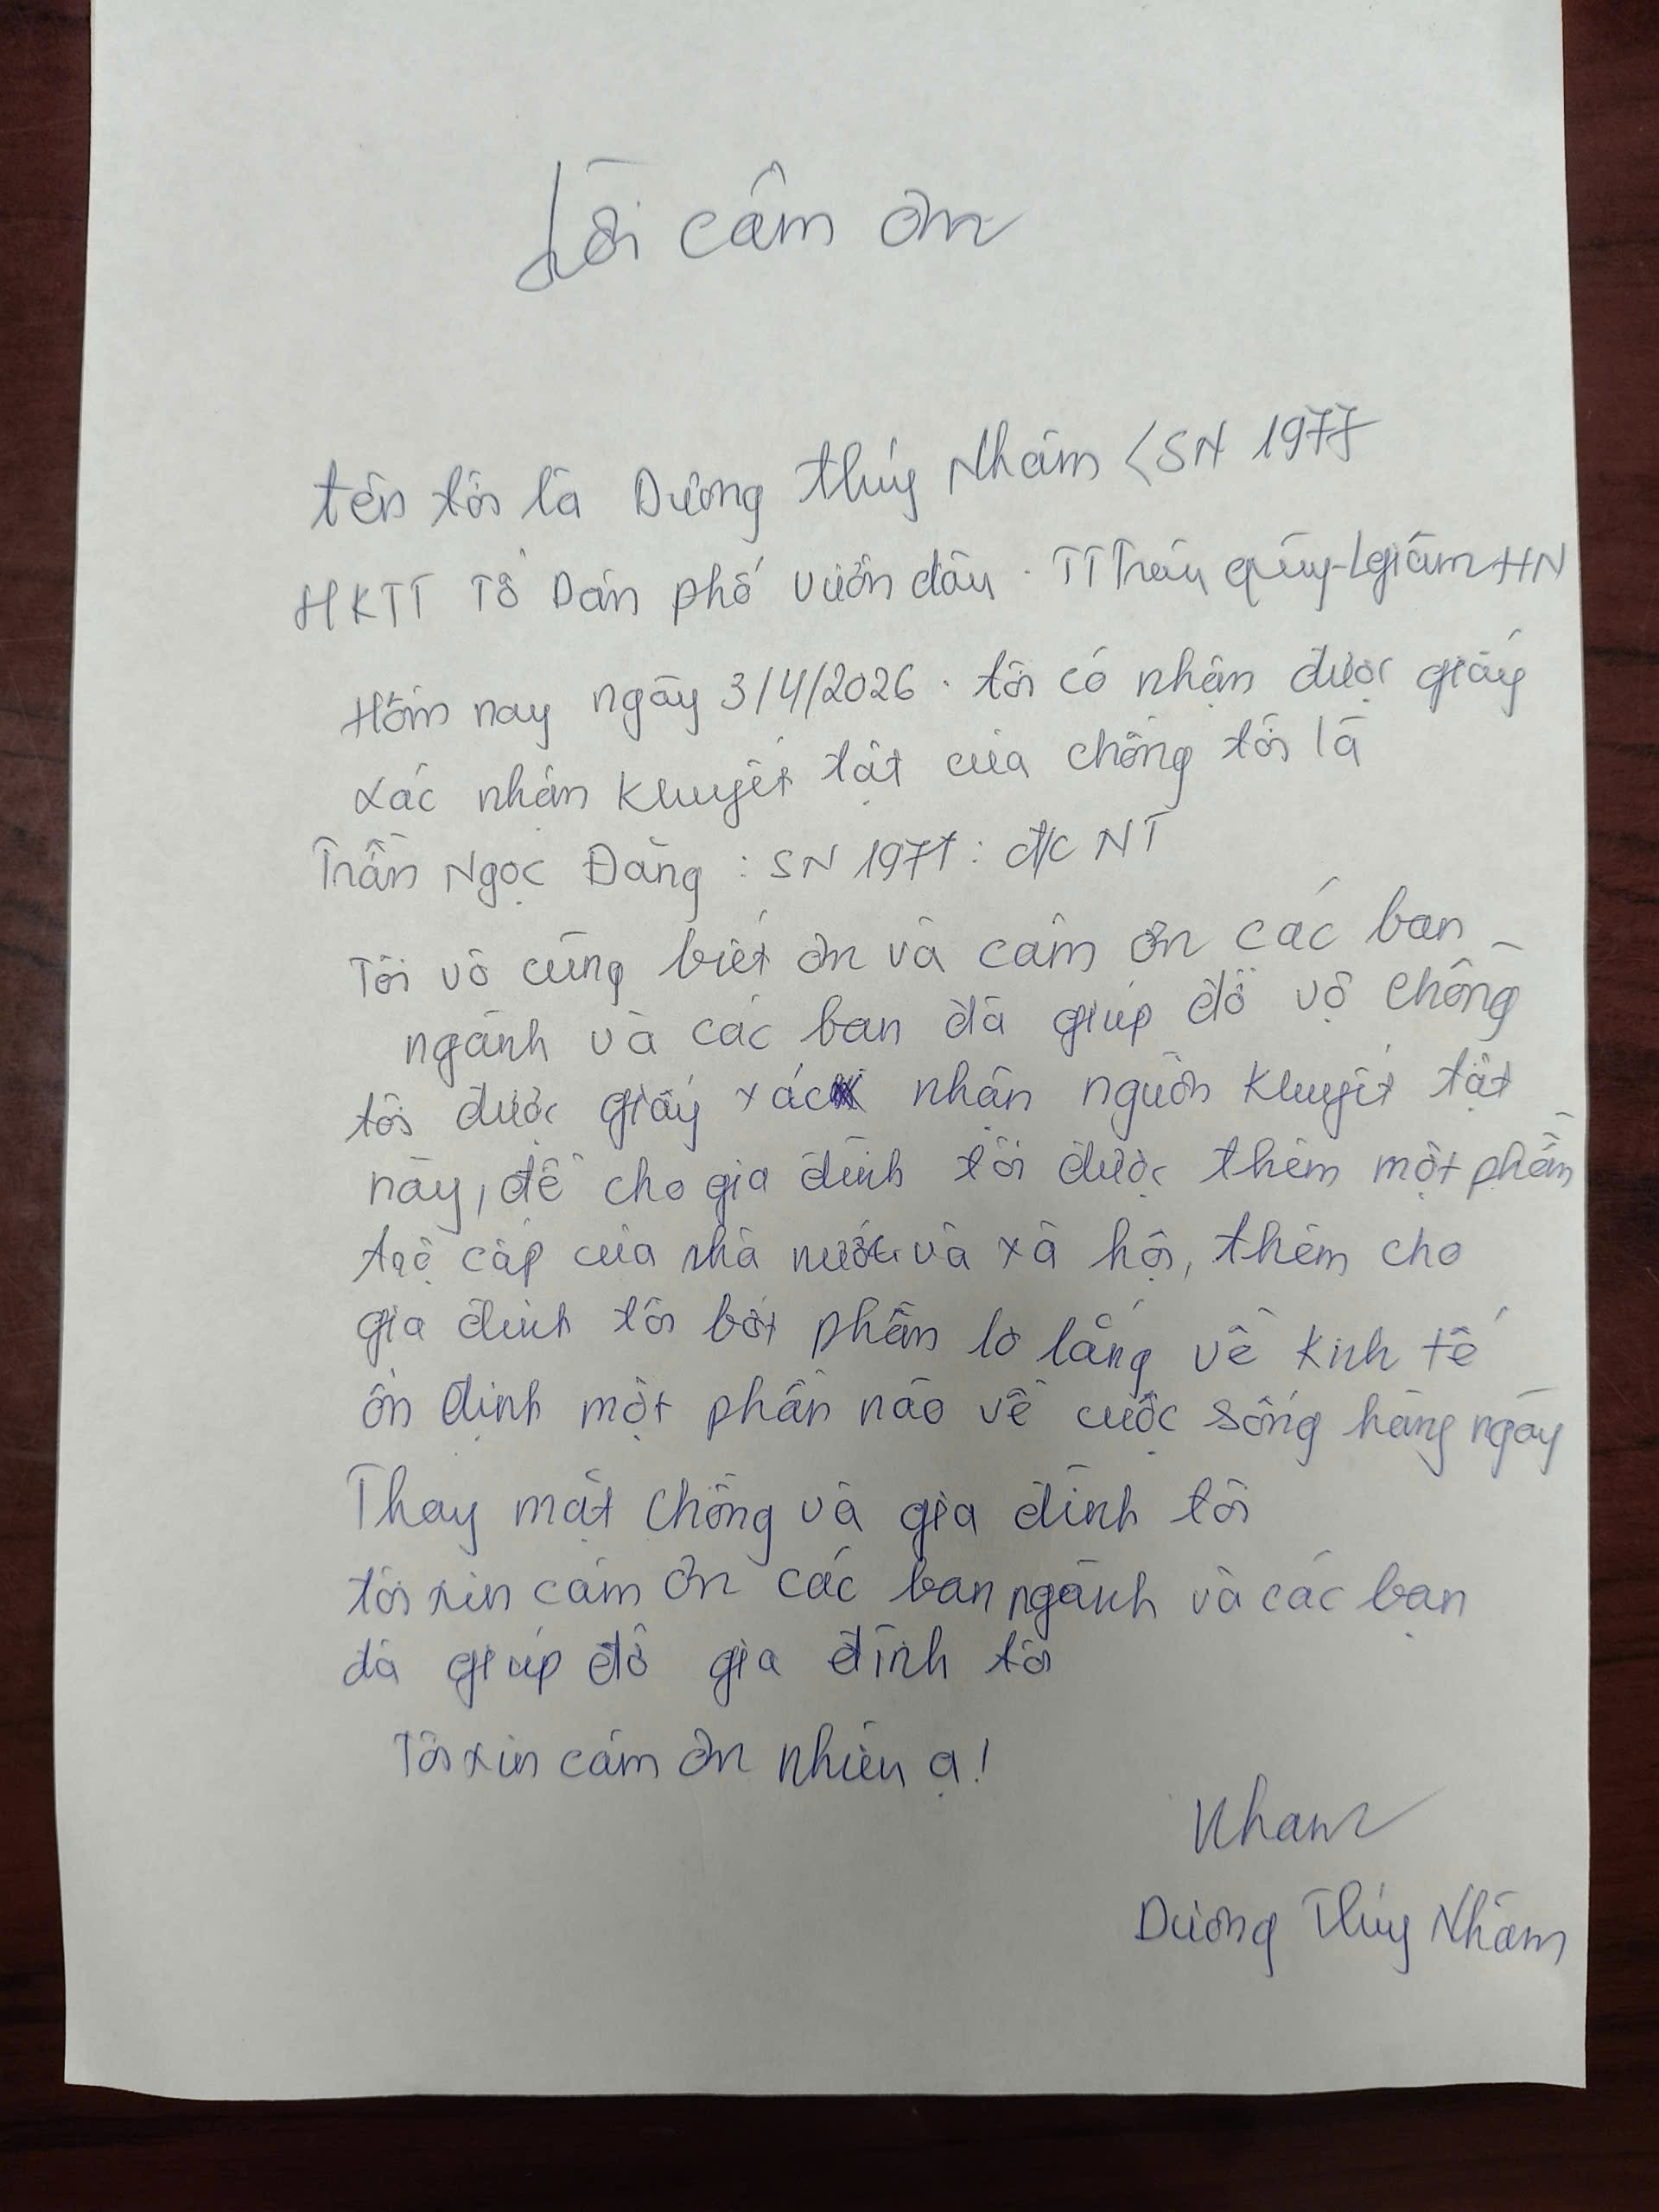 Lời cảm ơn
tên tôi là Dương Thúy Nhâm (SN 1977
HKTT Tổ Dân phố vườn dâu. TT Trâu quỳ-Lgiâm HN
Hôm nay ngày 3/4/2026. tôi có nhận được giấy
xác nhận khuyết tật của chồng tôi là
Trần Ngọc Đăng: SN 1971: đ/c NT
Tôi vô cùng biết ơn và cảm ơn các ban
ngành và các bạn đã giúp đỡ vợ chồng
tôi được giấy xác nhận người khuyết tật
này, để cho gia đình tôi được thêm một phần
trợ cấp của nhà nước và xã hội, thêm cho
gia đình tôi bớt phần lo lắng về kinh tế
ổn định một phần nào về cuộc sống hàng ngày
Thay mặt chồng và gia đình tôi
tôi xin cám ơn các ban ngành và các bạn
đã giúp đỡ gia đình tôi
Tôi xin cám ơn nhiều ạ!
Nham
Dương Thúy Nhâm